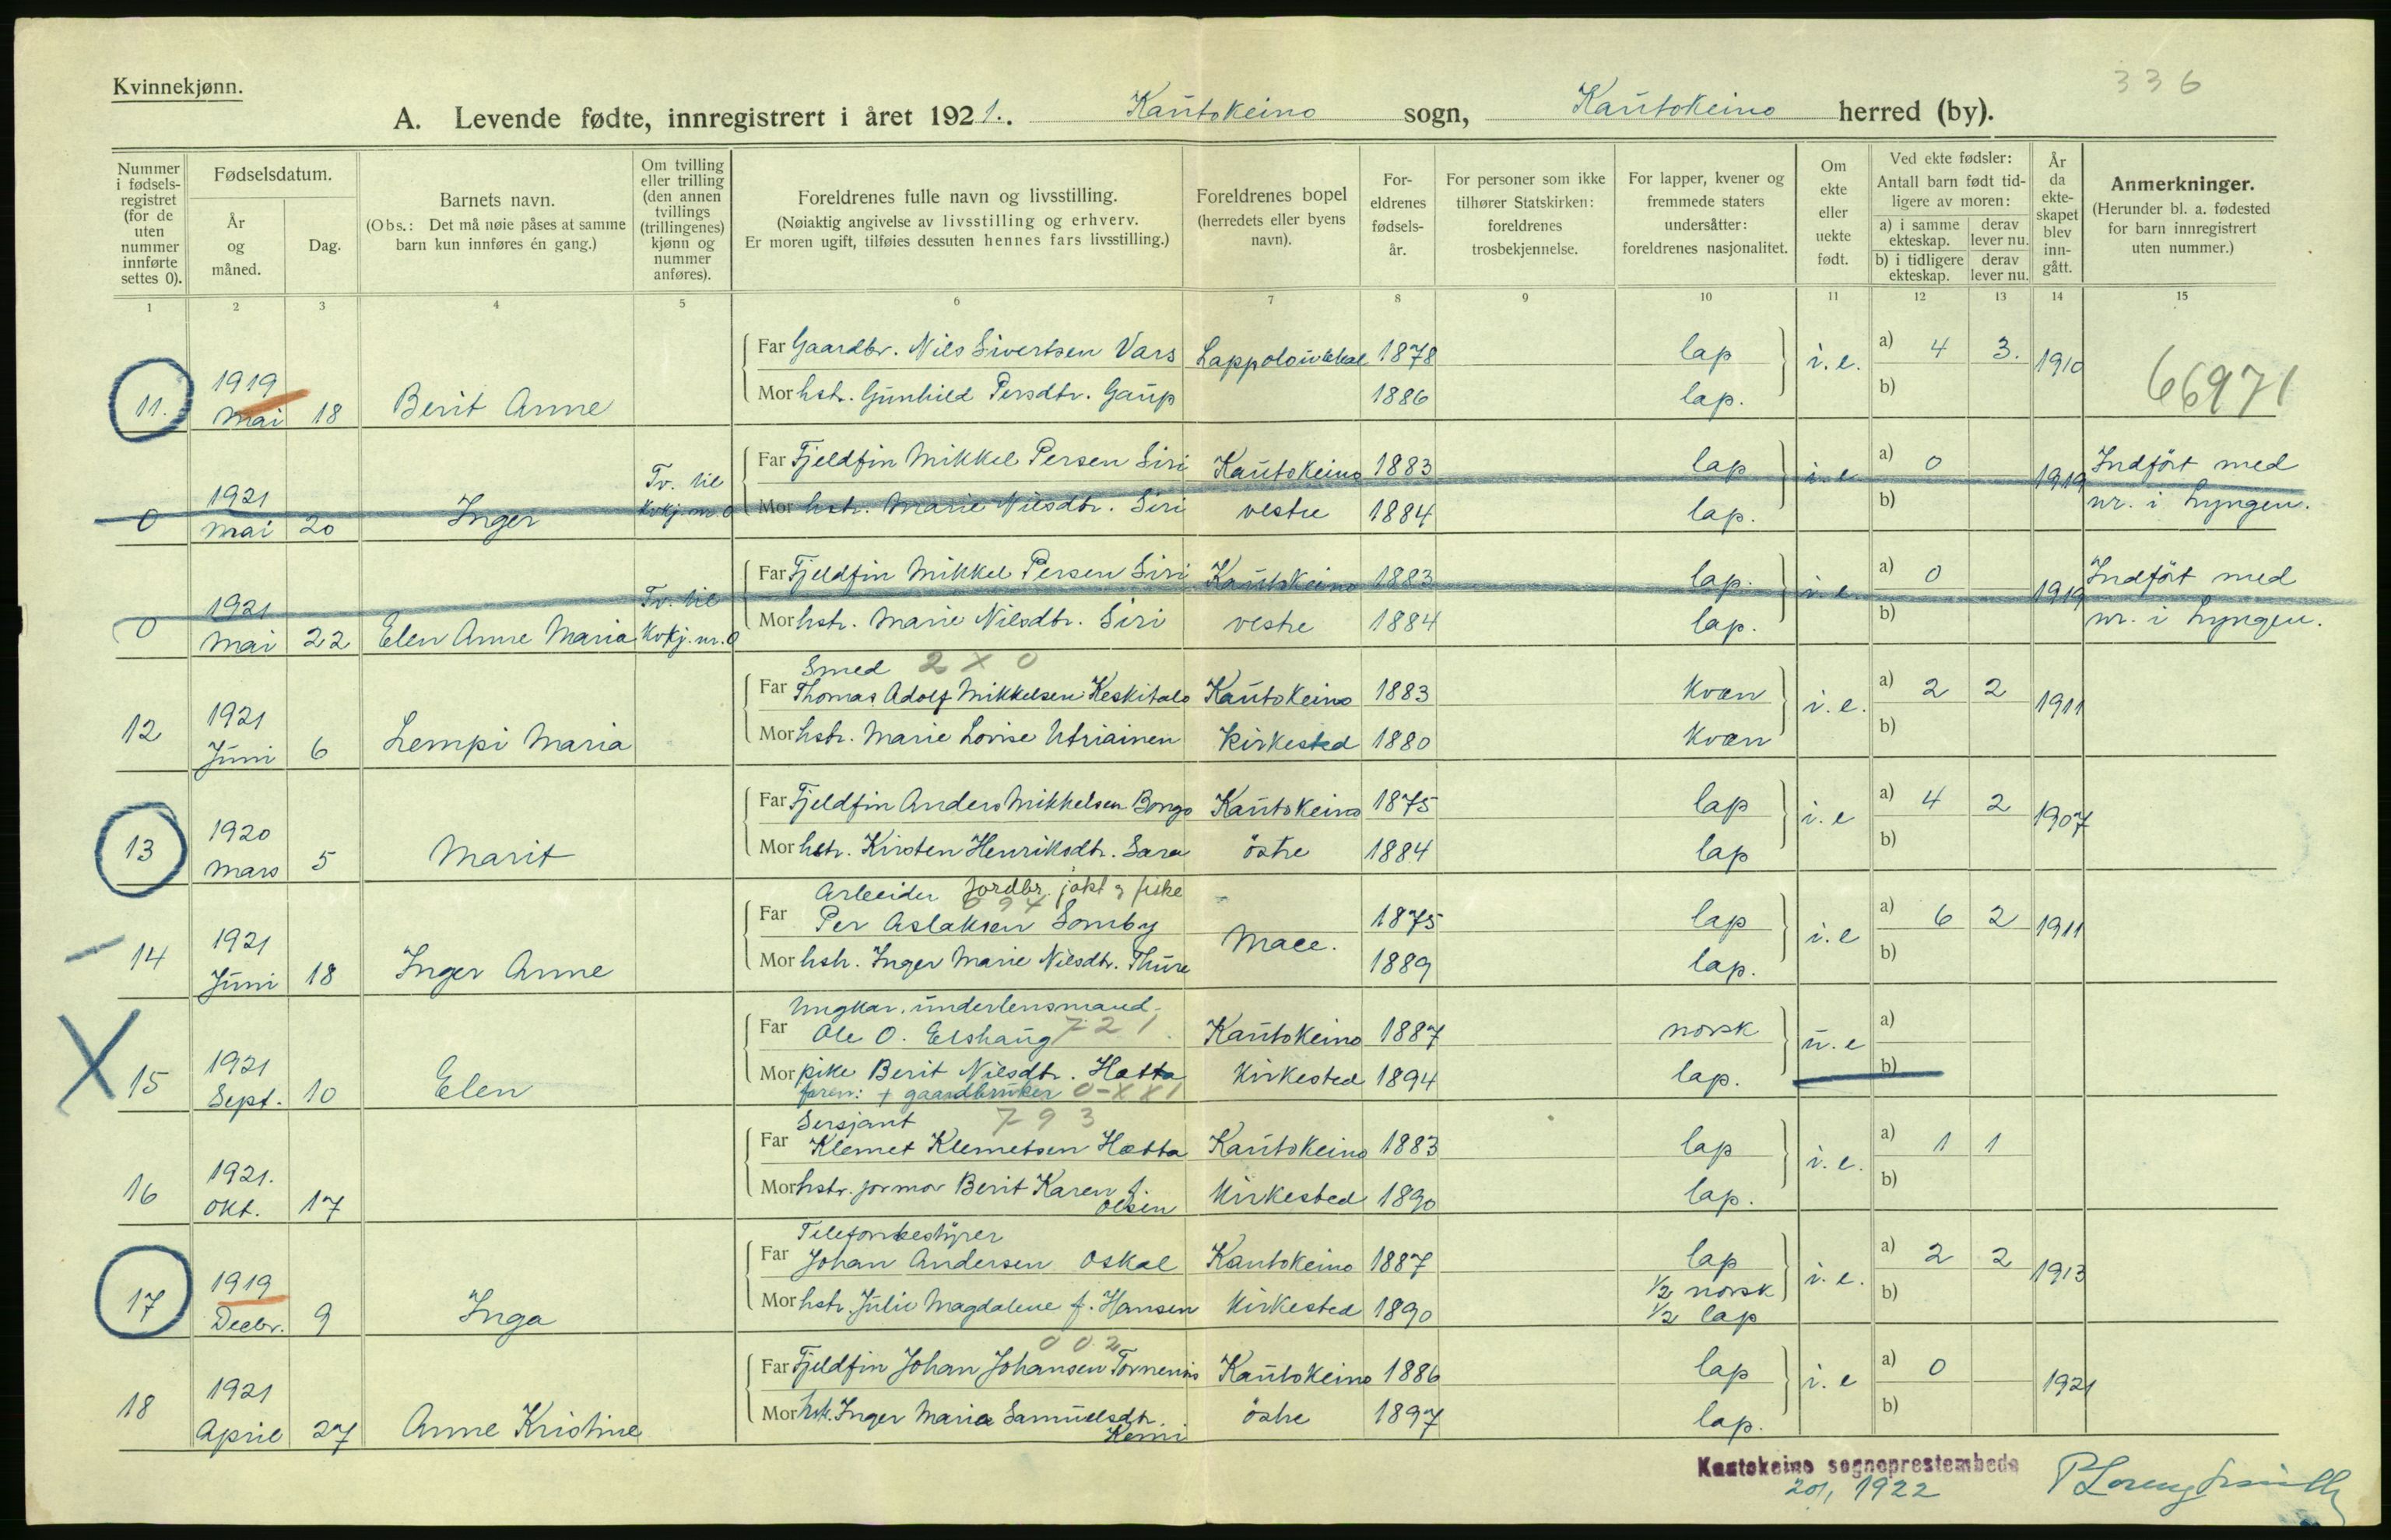 Kvinnekjønn.
336
A. Levende fødte, innregistrert i året 1921. Kautokeino sogn, Kautokeino herred (by).
Nummer i fødselsregistret (for de uten nummer innførte settes 0).
Fødselsdatum.
År og måned.
Dag.
Barnets navn.
(Obs.: Det må nøie påses at samme barn kun innføres én gang.)
Om tvilling eller trilling (den annen tvillings (trillingenes) kjønn og nummer anføres).
Foreldrenes fulle navn og livsstilling.
(Nøiaktig angivelse av livsstilling og erhverv.
Er moren ugift, tilføies dessuten hennes fars livsstilling.)
Foreldrenes bopel
(herredets eller byens navn).
Foreldrenes fødselsår.
For personer som ikke tilhører Statskirken: foreldrenes trosbekjennelse.
For lapper, kvener og fremmede staters undersåtter: foreldrenes nasjonalitet.
Om ekte eller uekte født.
Ved ekte fødsler:
Antall barn født tidligere av moren:
a) i samme ekteskap. derav lever nu.
b) i tidligere ekteskap. derav lever nu.
År da ekteskapet blev inngått.
Anmerkninger.
(Herunder bl. a. fødested for barn innregistrert uten nummer.)
1 2 3 4 5 6 7 8 9 10 11 12 13 14 15
Far Gaardbr. Nils Sivertsen Vars 1878 lap i.e. a) 4 3. 1910
11. 1919 Mai 18 Berit Anne 66971
Mor hstr. Gunhild Persdtr. Gaup 1886 lap. b)
Far Fjeldfin Mikkel Persen Siri Kautokeino 1883 lap i.e a) 0 1919 Indført med
0 1921 Mai 20 Inger Tv. til Kvkj. nr. 0
Mor hstr. Marie Nilsdtr. Siri vestre 1884 lap. b) nr. i Lyngen.
Far Fjeldfin Mikkel Persen Siri Kautokeino 1883 lap. i.e. a) 0 1919 Indført med
0 1921 Mai 22 Elen Anne Maria Tv. til Kvkj. nr. 0
Mor hstr. Marie Nilsdtr. Siri vestre 1884 lap. b) nr. i Lyngen.
Smed 2 X 0
Far Thomas Adolf Mikkelsen Keskitalo Kautokeino 1883 Kvæn i.e. a) 2 2 1911
12 1921 Juni 6 Lempi Maria
Mor hstr. Marie Lovise Utriainen Kirkested 1880 Kvæn b)
Far Fjeldfin Anders Mikkelsen Bongo Kautokeino 1875 lap i.e a) 4 2 1907
13 1920 Mars 5 Marit
Mor hstr. Kirsten Henriksdtr. Sara östre 1884 lap b)
Arbeider Jordbr. jakt & fiske
Far Per Aslaksen Somby 1875 lap i.e a) 6 2 1911
14 1921 Juni 18 Inger Anne
Mor hstr. Inger Marie Nilsdtr. Thure 1889 lap. b)
Ungkar. underlensmand. 721
Far Ole O. Elshaug Kautokeino 1887 norsk u.e a)
15 1921 Sept. 10 Elen
Mor pike Berit Nilsdtr. Hætta Kirkested 1894 lap. b)
faren: + gaardbruker 0-XX1
Sersjant 793
Far Klemet Klemetsen Hætta Kautokeino 1883 lap i.e. a) 1 1
16 1921. Okt. 17
Mor hstr. jormor Berit Karen f. Olsen Kirkested 1890 lap. b)
Telefonbestyrer
Far Johan Andersen Oskal Kautokeino 1887 lap i.e. a) 2 2 1913
17 1919 Decbr. 9 Inga
Mor hstr. Julie Magdalene f. Hansen Kirkested 1890 ½ norsk ½ lap b)
0 0 2
Far Fjeldfin Johan Johansen Tornensis Kautokeino 1886 lap i.e a) 0 1921
18 1921 April 27 Anne Kristine
Mor hstr. Inger Maria Samuelsdtr. Kemi östre 1897 lap. b)
Kautokeino sogneprestembede
20/1 1922